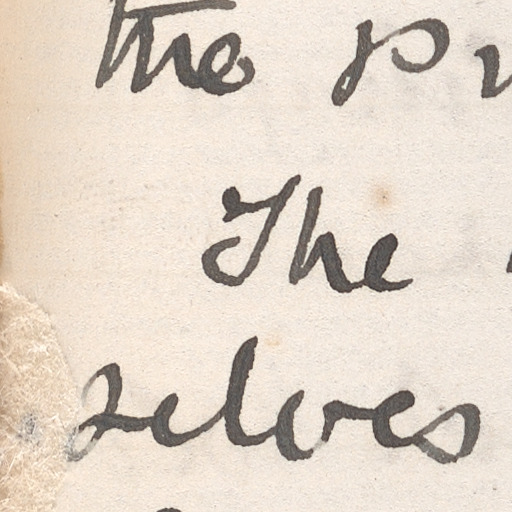 the
The
selves